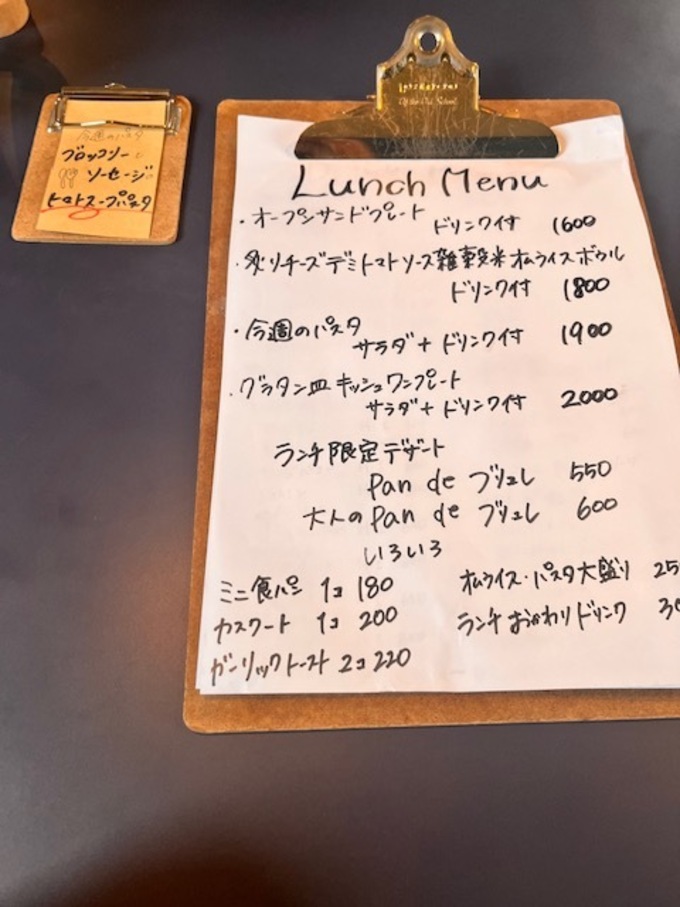 今週のパスタ
ブロッコリーと
ソーセージの
トマトスープパスタ
Lunch Menu
・オープンサンドプレート
ドリンク付 1600
・炙りチーズデミトマトソース雑穀米オムライスボウル
ドリンク付 1800
・今週のパスタ
サラダ+ドリンク付 1900
・グラタン皿キッシュワンプレート
サラダ+ドリンク付 2000
ランチ限定デザート
Pan de ブリュレ 550
大人のPan de ブリュレ 600
いろいろ
ミニ食パン 1コ 180
カスクート 1コ 200
ガーリックトースト 2コ 220
オムライス・パスタ大盛り 25
ランチおかわりドリンク 30